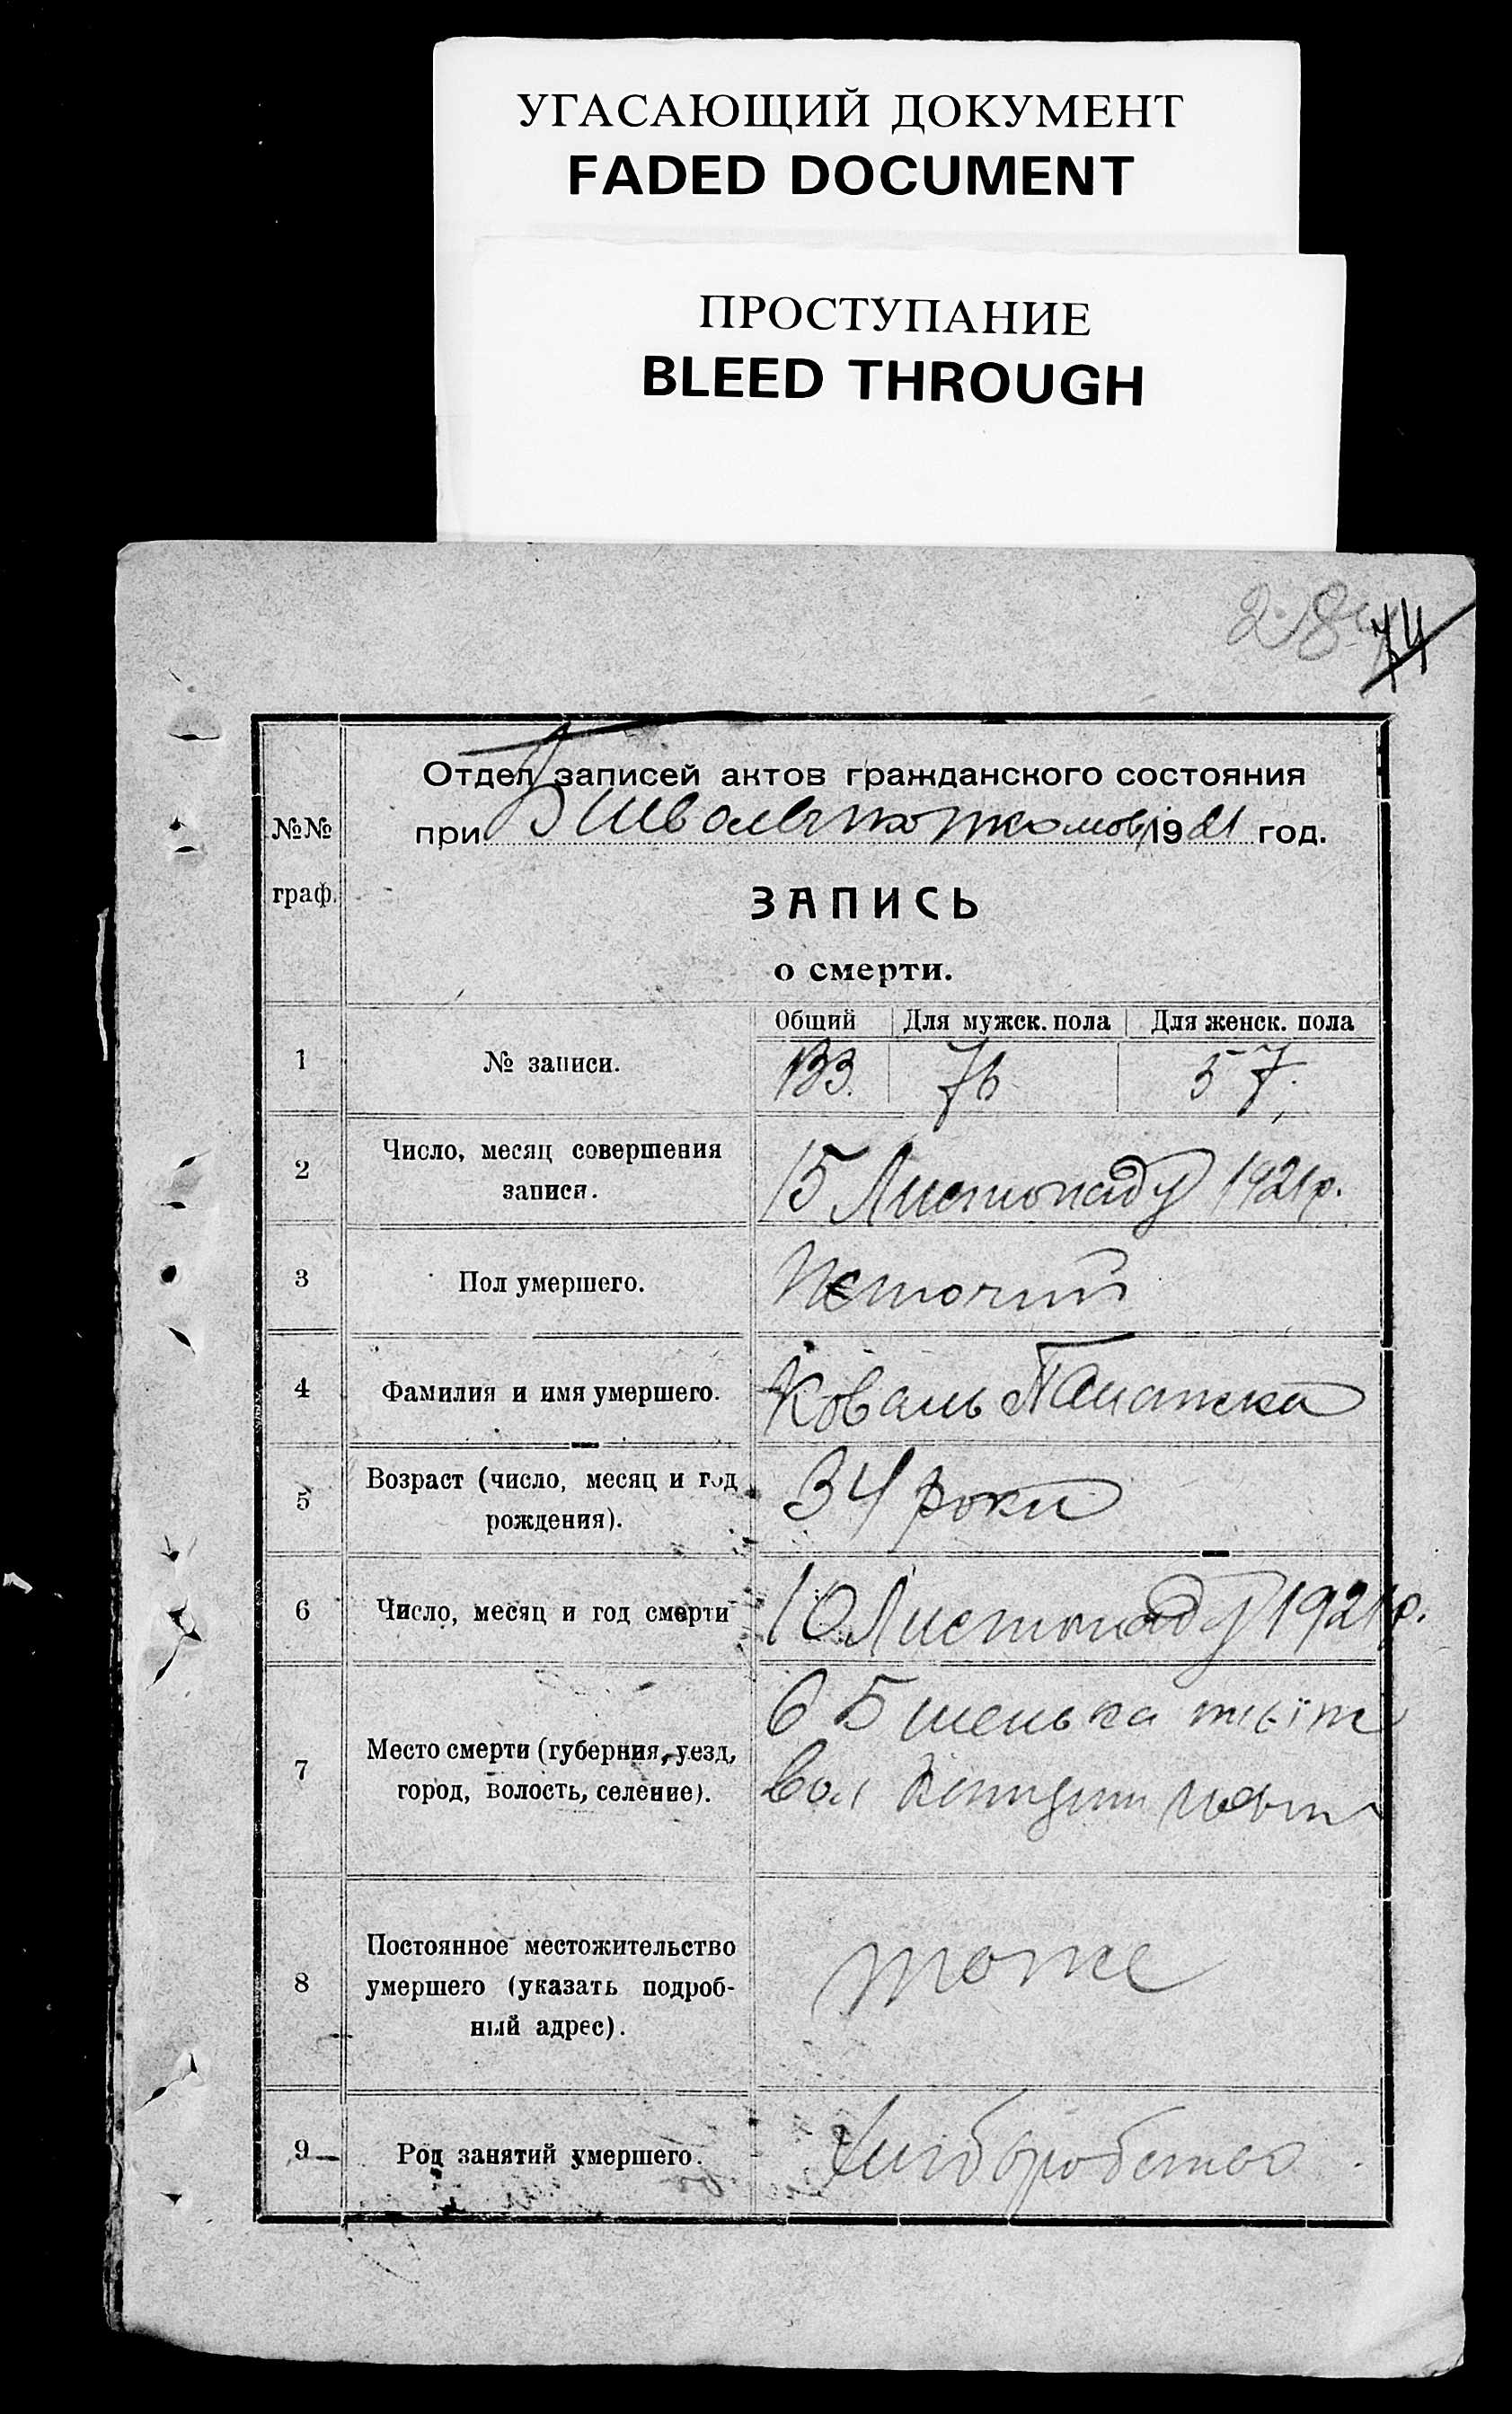 УГАСАЮЩИЙ ДОКУМЕНТ
FADED DOCUMENT
ПРОСТУПАНИЕ
BLEED THROUGH
284 74
№№ граф.
Отдел записей актов гражданского состояния
при 1921 год.
ЗАПИСЬ
о смерти.
Общий Для мужск. пола Для женск. пола
1 № записи. 133. 76 57.
2 Число, месяц совершения записи. 15 Листопаду 1921 р.
3 Пол умершего.
4 Фамилия и имя умершего. Коваль
5 Возраст (число, месяц и год рождения). 34 роки
6 Число, месяц и год смерти 10 Листопаду 1921 р.
7 Место смерти (губерния, уезд, город, волость, селение).
8 Постоянное местожительство умершего (указать подроб-
ный адрес). тоже
9 Род занятий умершего.